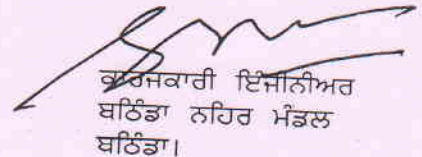 ਕਾਰਜਕਾਰੀ ਇੰਜੀਨੀਅਰ
ਬਠਿੰਡਾ ਨਹਿਰ ਮੰਡਲ
ਬਠਿੰਡਾ।